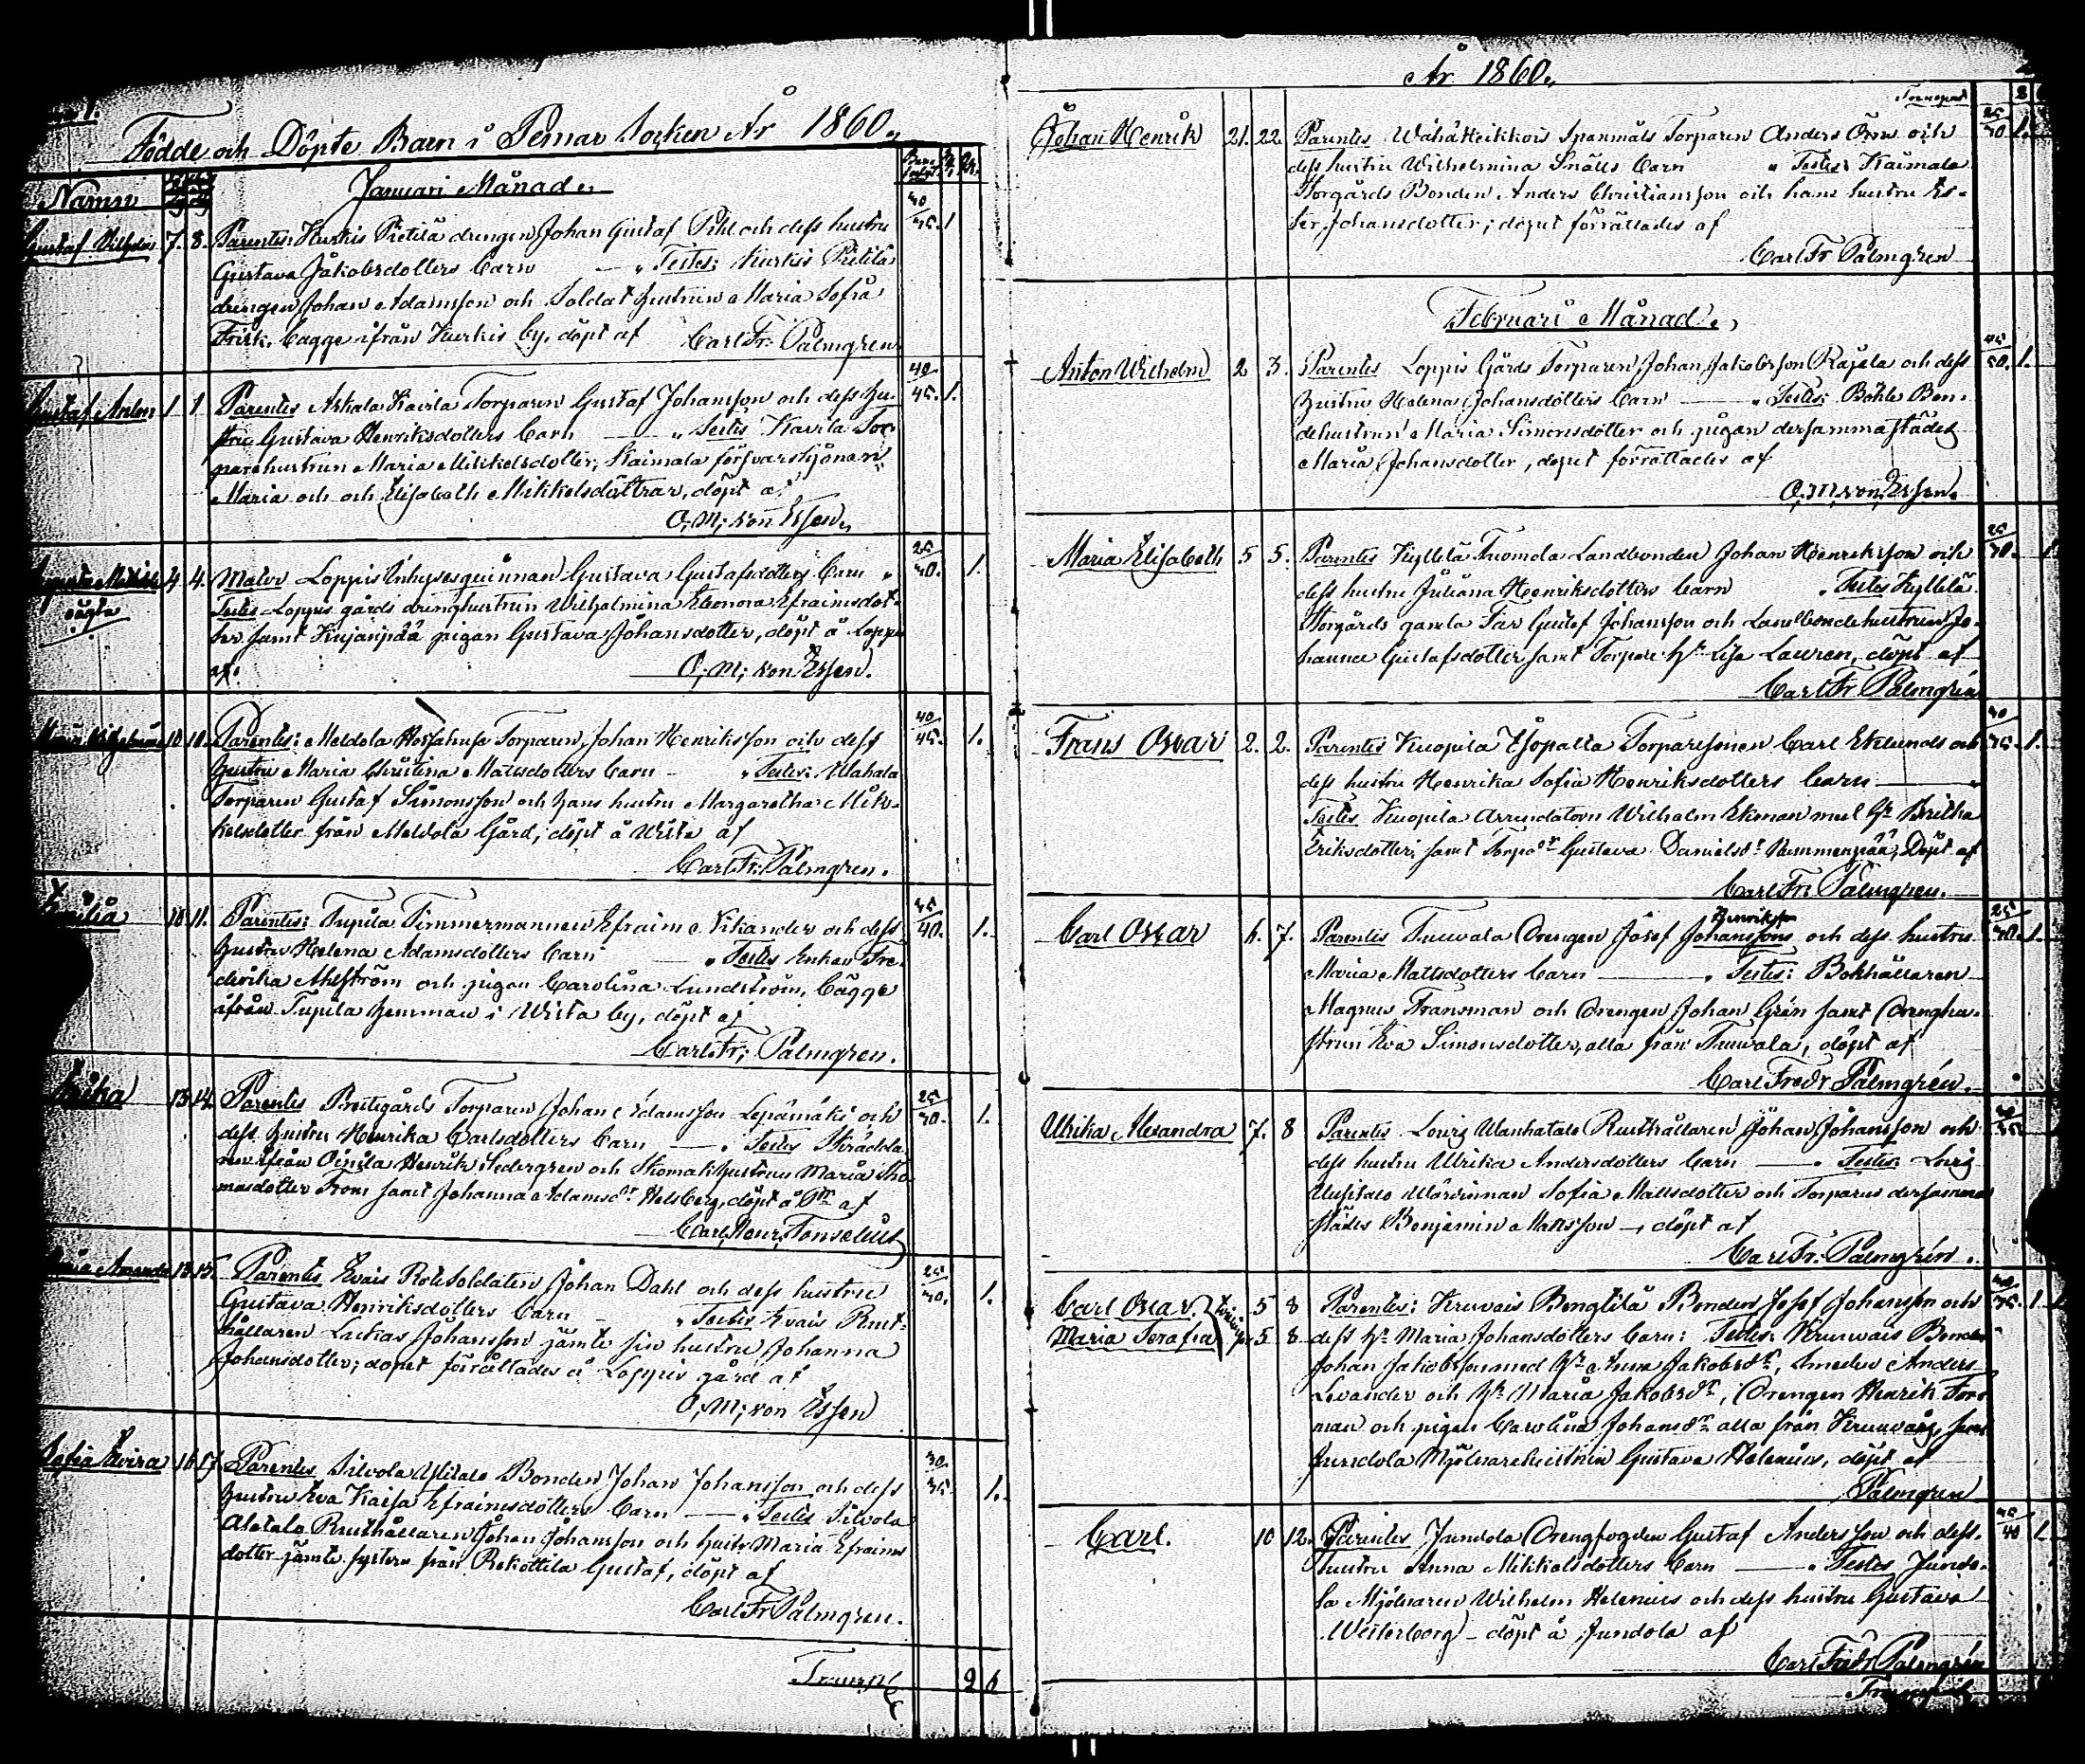 Födde och Döpte Barn i Pemar Socken År 1860.
Namn
Januari Månad.
Gustaf Vilhelm 7. 8. Parentes: Kurkis Pietilä drengen Johan Gustaf Pihl och dess hustru 30/35. 1
Gustava Jakobsdotters Barn " Testes: Kurkis Pietilä
drengen Johan Adamsson och Soldat hustrun Maria Sofia
Frisk, bägge ifrån Kurkis by, döpt af Carl Fr. Palmgren
Gustaf Anton 1 1 Parentes Askala Kavila Torparen Gustaf Johansson och dess hu- 40/45. 1.
stru Gustava Henriksdotters Barn " Testes Kavila Tor-
parehustrun Maria Mikkelsdotter, Kaimala
Maria och och Elisabeth Mikkelsdöttrar, döpt af
O. M. von Essen.
4. 4. Mater Loppis Inhyses qvinnan Gustava Gustafsdotters Barn " 25/30. 1.
oägta
Testes Loppis gårds drenghustrun Wilhelmina Eleonora Efraimsdot-
ter samt Kujanpää pigan Gustava Johansdotter, döpt å Loppis
af. O. M. von Essen.
10. 10. Parentes: Meldola Torparen Johan Henriksson och dess 40/45. 1.
hustru Maria Christina Mattsdotters Barn " Testes:
Torparen Gustaf Simonsson och hans hustru Margaretha Mik-
kelsdotter från Meldola Gård, döpt å Wista af
Carl Fr. Palmgren.
10. 11. Parentes: Tupila Timmermannen Efraim Nikander och dess 35/40. 1.
hustru Helena Adamsdotters Barn " Testes Enkan Fre-
derika Ahlström och pigan Carolina Lundström, bägge
ifrån Tupila hemman i Wista by, döpt af
Carl Fr. Palmgren.
13. 14. Parentes Prestegårds Torparen Johan Adamsson Lepämäki och 25/30. 1.
dess hustru Henrika Carlsdotters Barn " Testes Skrädda-
ren ifrån Oinila Henrik Sedergren och Skomak. hustrun Maria Tho-
masdotter From samt Johanna Adamsdr Helsberg, döpt å af
Carl Henr. Fonselius
Amanda 13. 15. Parentes Evais Rote Soldaten Johan Dahl och dess hustru 25/30. 1.
Gustava Henriksdotters Barn " Testes Evais Rust-
hållaren Lukas Johansson jämte sin hustru Johanna
Johansdotter; dopet förrättades å Loppis gård af
O. M. von Essen
Sofia Elvira 16 17. Parentes Silvola Ylitalo Bonden Johan Johansson och dess 30/35. 1.
hustru Eva Kaisa Efraimsdotters Barn " Testes Silvola
Alatalo Rusthållaren Johan Johansson och hustr Maria Efraims
dotter jämte systern från Rekottila Gustaf, döpt af
Carl Fr Palmgren.
Transp. 2 6
År 1860.
Transport 2 6
Johan Henrik 21. 22. Parentes Wähä Heikkois Spanmåls Torparen Anders Örn och 25/30 1.
dess hustru Wilhelmina Snälls Barn " Testes Kaimala
Storgårds Bonden Anders Christiansson och hans hustru Es-
ter Johansdotter; dopet förrättades af
Carl Fr Palmgren
Februari Månad.
Anton Wilhelm 2 3. Parentes Loppis Gårds Torparen Johan Jakobsson Rajala och dess 45/50. 1.
hustru Helena Johansdotters Barn " Testes: Böhle Bon-
dehustrun Maria Simonsdotter och pigan dersammastädes
Maria Johansdotter, dopet förrättades af
O. M. von Essen.
Maria Elisabeth 5 5. Parentes Kyllelä Tuomola Landbonden Johan Henriksson och 25/30. 1
dess hustru Juliana Henriksdotters Barn " Testes Kyllelä
Storgårds gamla Far Gustaf Johansson och Landbondehustrun Jo-
hanna Gustafsdotter samt Torpare hr Lisa Lauren, döpt af
Carl Fr. Palmgren
Frans Oscar 2. 2. Parentes Kuopila Torparesonen Carl Eklunds och 30/35. 1.
dess hustru Henrika Sofia Henriksdotters Barn
Testes Kuopila Arrendatorn Wilhelm Ekman med hr Britha
Eriksdotter, samt Gustava Danielsdr Nummenpää, Döpt af
Carl Fr. Palmgren.
Carl Oscar 6. 7. Parentes Tuuvala Drengen Josef Johanssons Henriksson och dess hustru 25/30. 1.
Maria Mattsdotters Barn " Testes: Bokhållaren
Magnus Fransman och Drengen Johan Grén samt Drenghu-
strun Eva Simonsdotter, alla från Tuuvala, döpt af
Carl Fredr Palmgrén.
Ulrika Alexandra 7. 8 Parentes Rusthållaren Johan Johansson och 30/35
dess hustru Ulrika Andersdotters Barn " Testes:
Uusitalo Wärdinnan Sofia Mattsdotter och Torparen dersamma
städes Benjamin Mattsson, döpt af
Carl Fr. Palmgrén.
Carl Oscar. 5 8 Parentes: Kruvais Bengtilä Bonden Josef Johansson och 30/35. 1 1
Maria Serafia 5 8 dess hr Maria Johansdotters Barn: Testes: Kruuvais Bonden
Johan Jakobsson med hr Anna Jakobsdr, Smeden Anders
Levander och hr Maria Jakobsdr, Drengen Henrik Fors
man och pigan Carolina Johansdr alla från Kruuvais, samt
Jundola Mjölnarehustrun Gustava Helenius, döpt af
Palmgren
Carl. 10 12. Parentes Jundola Drengfogden Gustaf Andersson och dess 35/40 1
hustru Anna Mikkelsdotters Barn " Testes Jundo-
la Mjölnaren Wilhelm Helenius och dess hustru Gustava
Westerborg - döpt å Jundola af
Carl Fredr Palmgrén